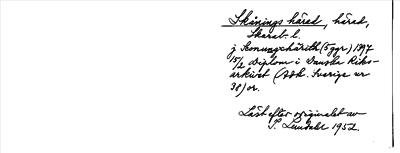 Skånings härad, härad,
Skarab. l.
j Konungxhärith (5 ggr) 1397
15/2 diplom i Danska Riks-
arkivet (Avh. Sverige nr
38) or.
Läst efter originalet av
S. Lundahl 1952.